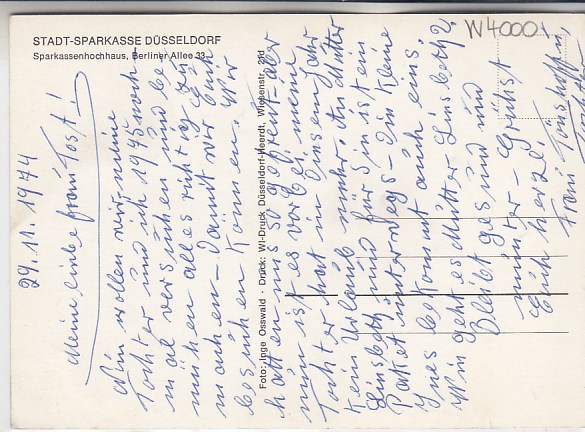 STADT-SPARKASSE DÜSSELDORF
Sparkassenhochhaus, Berliner Allee 33
W4000
Foto: Inge Osswald · Druck: WI-Druck Düsseldorf-Heerdt, Wiesenstr.
29.11.1974
Meine liebe frau Tost!
Wir wollen wir meine
Tochter und ich 1975 noch
mal versuchen und be
mühen alles richtig zu
machen – Damit wir Euch
besuchen können. Wir
hatten uns so gefreut – aber
nun ist es vorbei, meine
Tochter hat in diesem Jahr
kein Urlaub mehr. An Mutter
Liesbeth und für Sie ist ein
Paket unterwegs – Die Kleine
Ynes bekommt auch eins.
Wie geht es Mutter Liesbeth?
Bleibt gesund und
munter – Grüßt
Euch herzl.
Frau